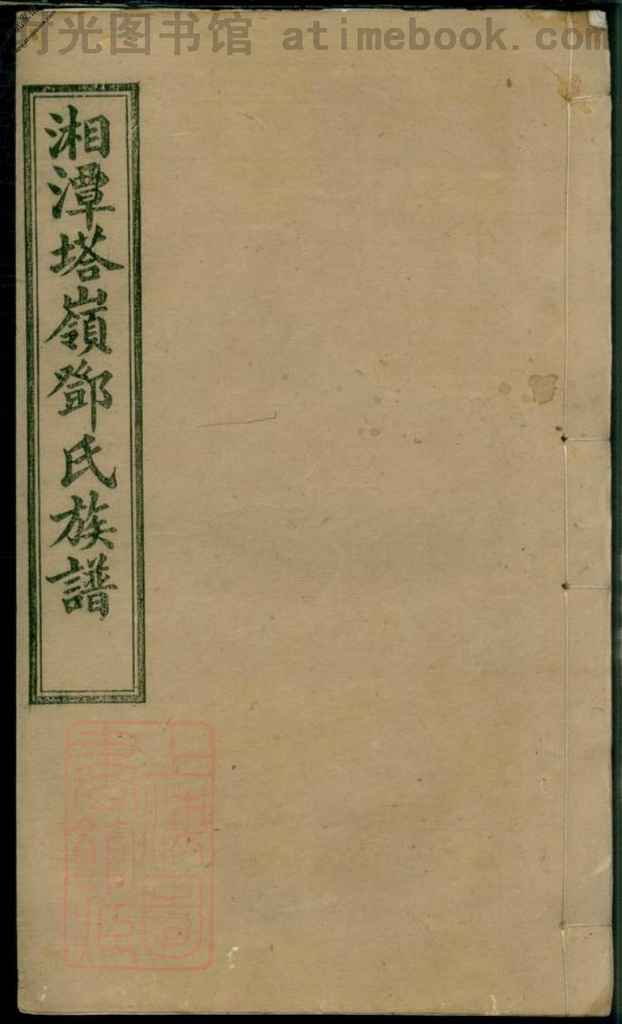 时光图书馆 atimebook.com
湘潭塔嶺鄧氏族譜
上海圖書館藏